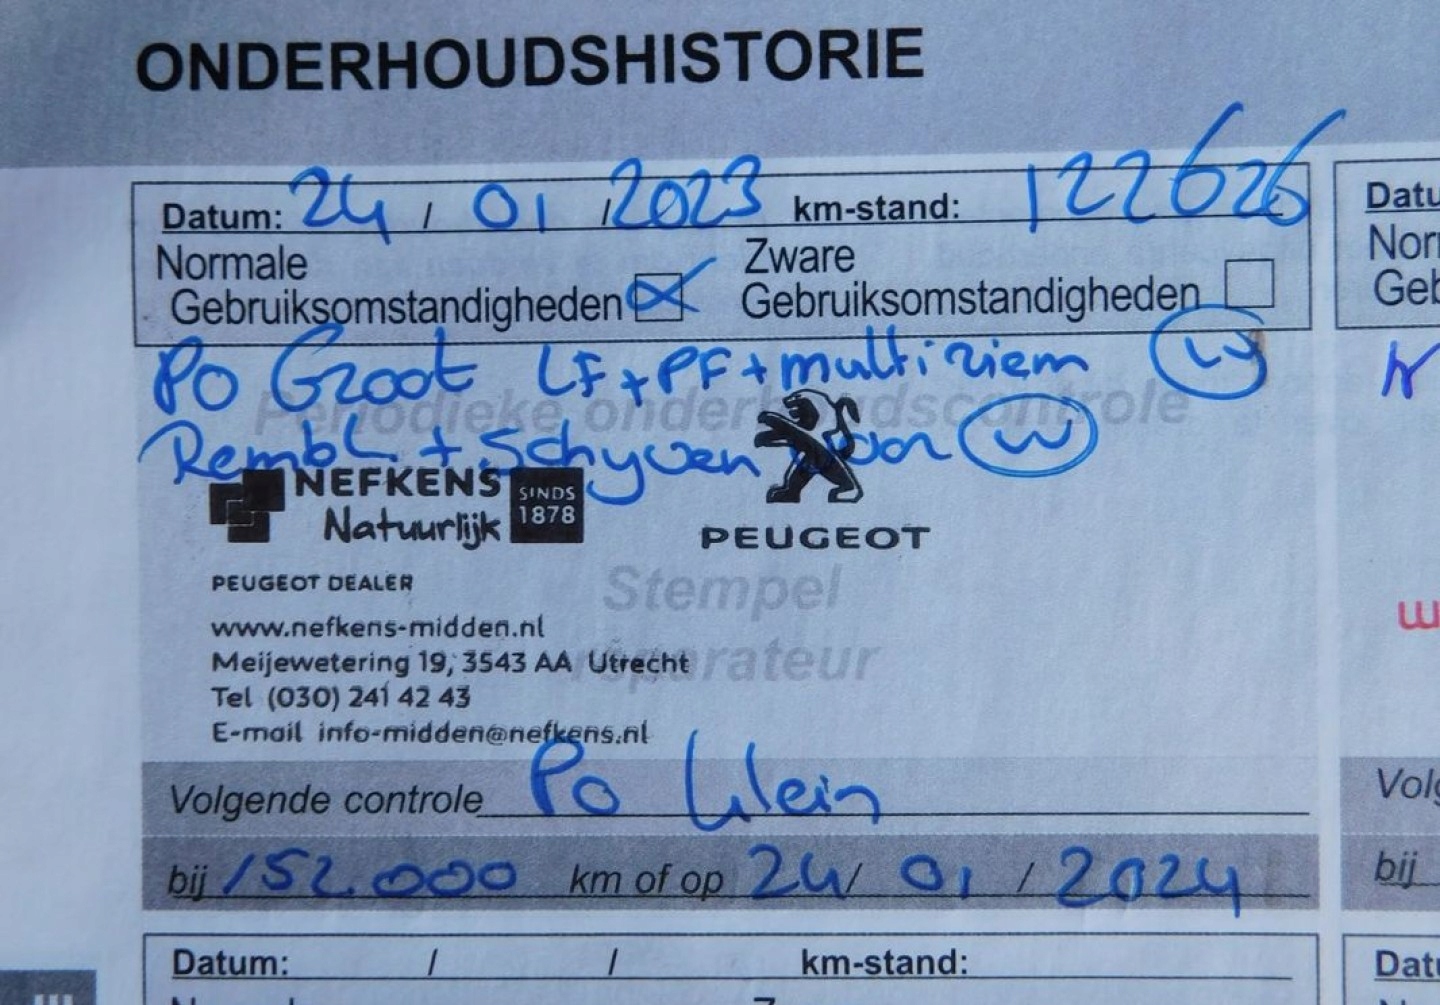 ONDERHOUDSHISTORIE
Datum: 24 / 01 / 2023 km-stand: 122626
Normale Gebruiksomstandigheden Zware Gebruiksomstandigheden
Po Groot LF + PF + multiriem W
Periodieke onderhoudscontrole
Rembl. + Schyven voor W
NEFKENS
Natuurlijk
SINDS
1878
PEUGEOT
PEUGEOT DEALER
Stempel
reparateur
www.nefkens-midden.nl
Meijewetering 19, 3543 AA Utrecht
Tel (030) 241 42 43
E-mail info-midden@nefkens.nl
Volgende controle Po klein
bij 152.000 km of op 24 / 01 / 2024
Datum: / / km-stand:
Datu
Nor
Geb
Volg
bij
Datu